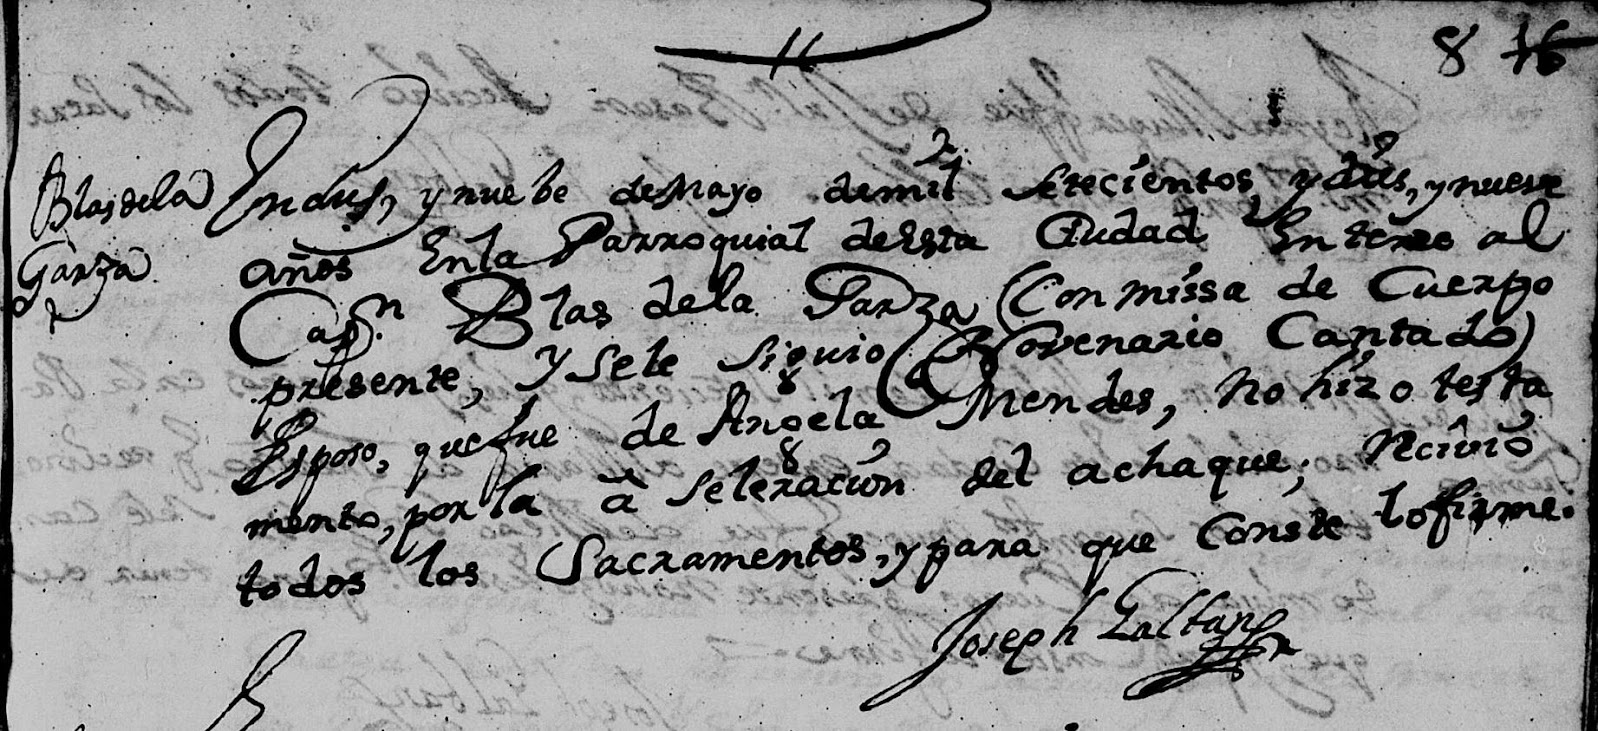 8 16
Blas dela
Garza
En dies, y nuebe de Mayo de mil setecientos, y dies, y nueve
años En la Parroquial de Esta Ciudad Enterre al
Cap.n Blas dela Garza (Con missa de Cuerpo
presente, y sele siguio Novenario Cantado)
Esposo, que fue de Angela Mendes, no hizo testa
mento, por la aseleracion del achaque; Recivio
todos los Sacramentos, y para que Conste lo firme.
Joseph